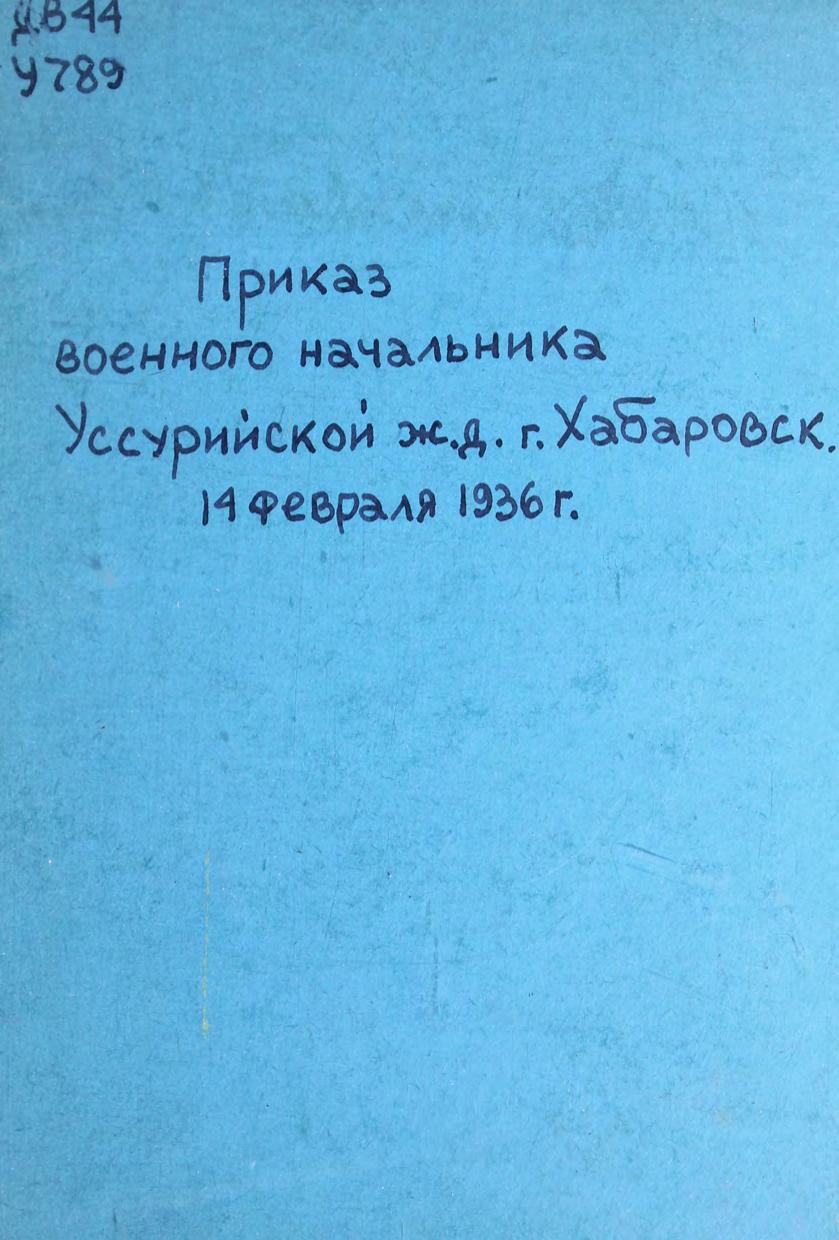 ДВ44
У789
Приказ
военного начальника
Уссурийской ж.д. г. Хабаровск.
14 февраля 1936 г.